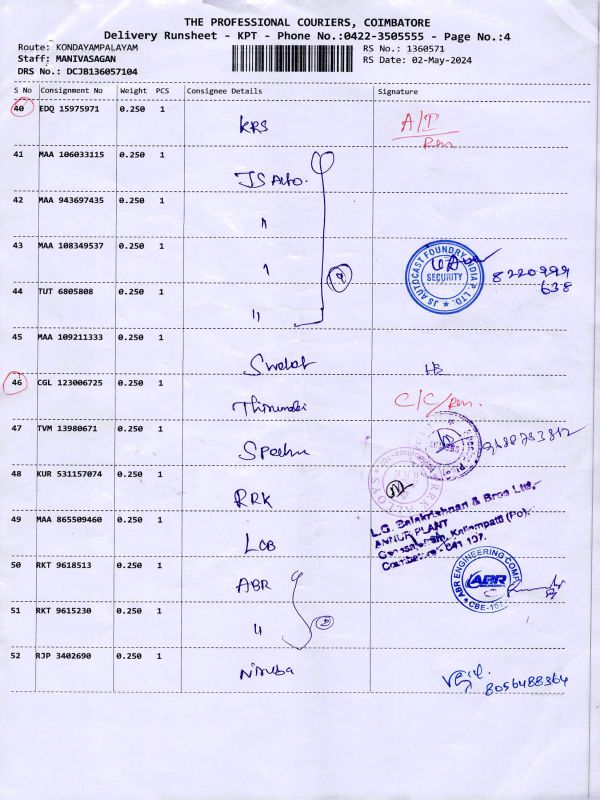 THE PROFESSIONAL COURIERS, COIMBATORE
Delivery Runsheet - KPT - Phone No.:0422-3505555 - Page No.:4
Route: KONDAYAMPALAYAM RS No.: 1360571
Staff: MANIVASAGAN RS Date: 02-May-2024
DRS No.: DCJB136057104
S No Consignment No Weight PCS Consignee Details Signature
40 EDQ 15975971 0.250 1 KRS A/P
41 MAA 106033115 0.250 1 JS Auto.
42 MAA 943697435 0.250 1 "
43 MAA 108349537 0.250 1 "
JS AUTOCAST FOUNDRY INDIA P. LTD. SECURITY 8220999
638
44 TUT 6805808 0.250 1 "
45 MAA 109211333 0.250 1
46 CGL 123006725 0.250 1 C/C
47 TVM 13980671 0.250 1
48 KUR 531157074 0.250 1 RRK
49 MAA 865509460 0.250 1 LGB
L.G. Balakrishnan & Bros Ltd,
ANNUR PLANT
Kariampatti (Po),
Coimbatore - 641 107.
50 RKT 9618513 0.250 1 ABR
ABR ENGINEERING COMP ABR CBE-107
51 RKT 9615230 0.250 1 "
52 RJP 3402690 0.250 1 Niruba
8056488364